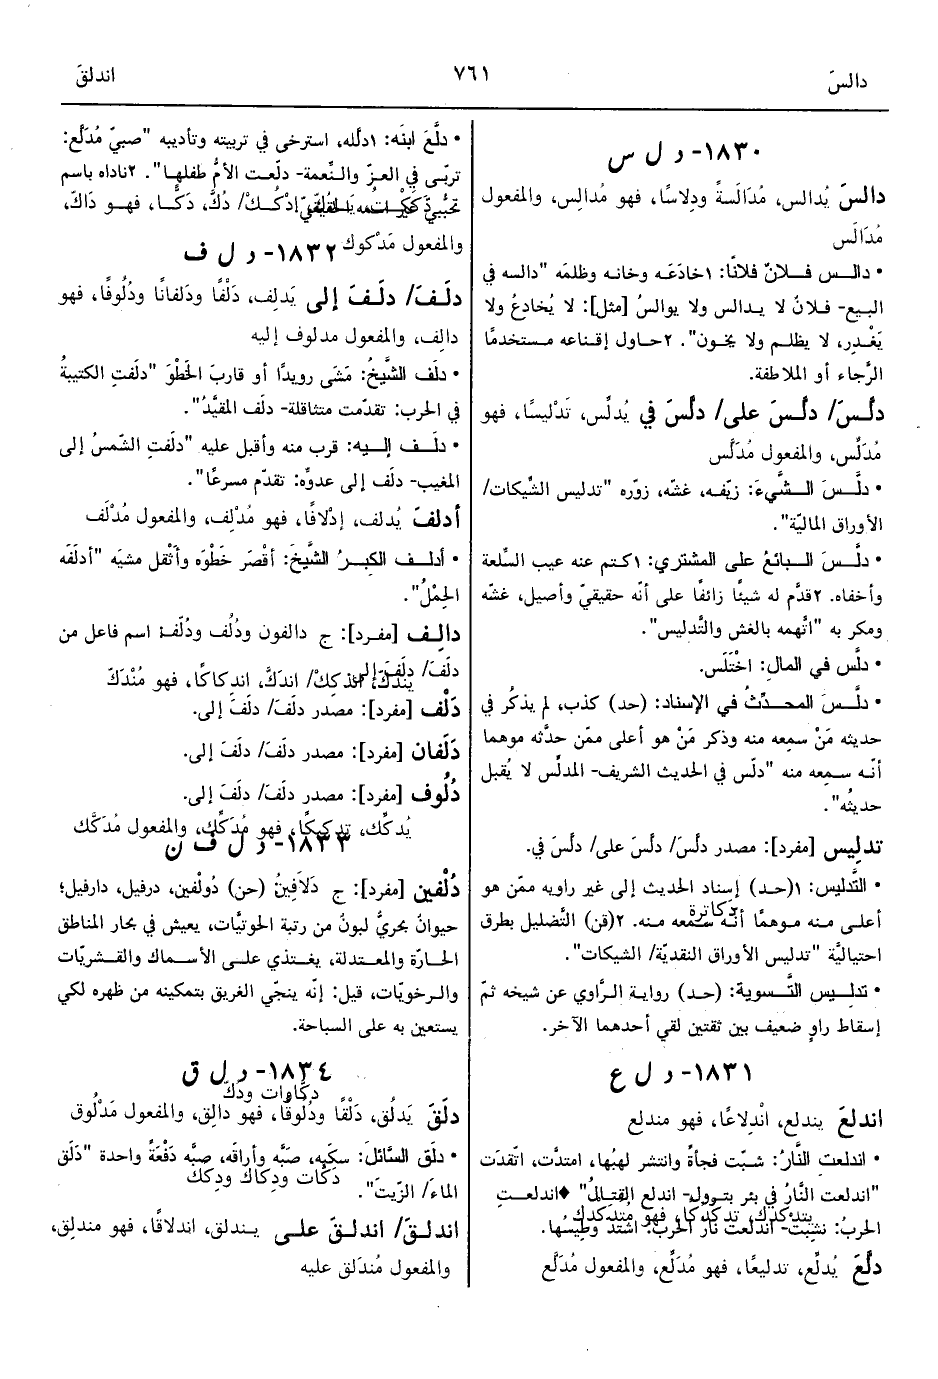 دالسَ
٧٦١
اندلقَ
١٨٣٠- د ل س
دالسَ يُدالس، مُدَالَسةً ودِلاسًا، فهو مُدالِس، والمفعول
مُدَالَس
• دالـس فـلانٌ فلانًا: ١خادَعَه وخانه وظلمَه "دالسه في
البيع- فـلانٌ لا يـدالس ولا يوالسُ [مثل]: لا يُخادعُ ولا
يَغْدِر، لا يظلـم ولا يخون". ٢حـاول إقـناعه مـستخدمًا
الرَّجاء أو الملاطفة.
دلَّسَ/ دلَّـسَ على/ دلَّسَ في يُدلِّس، تَدْليسًا، فهو
مُدَلِّس، والمفعول مُدَلَّس
• دلَّـسَ الـشَّيءَ: زيَّفه، غشّه، زوّره "تدليس الشِّيكات/
الأوراق الماليّة".
• دلَّـسَ الـبائعُ على المشتري: ١كـتم عنه عيب السِّلعة
وأخفاه. ٢قدَّم له شيئًا زائفًا على أنّه حقيقيّ وأصيل، غشّه
ومكر به "اتُّهمه بالغش والتَّدليس".
• دلَّس في المال: اخْتَلَس.
• دلَّـس المحـدِّثُ في الإسناد: (حد) كذب، لم يذكُر في
حديثه مَنْ سمعه منه وذكر مَنْ هو أعلى ممّن حدَّثه موهما
أنّـه سـمعه منه "دلّس في الحديث الشريف- المدلِّس لا يُقبل
حديثُه".
تدليس [مفرد]: مصدر دلَّسَ/ دلَّسَ على/ دلَّسَ في.
• التَّدليس: ١(حـد) إسناد الحديث إلى غير راويه ممّن هو
أعلى منه موهمًا أنّه سمعه منه. ٢(قن) التَّضليل بطرق
دكاترة
احتياليَّة "تدليس الأوراق النقديّة/ الشيكات".
• تدلـيس التَّـسوية: (حـد) روايـة الرَّاوي عن شيخه ثمّ
إسقاط راوٍ ضعيف بين ثقتين لقي أحدهما الآخر.
١٨٣١- د ل ع
اندلعَ يندلع، اندْلاعًا، فهو مندلع
• اندلعتِ النَّارُ: شبّت فجأةً وانتشر لهبُها، امتدَّت، اتقدَت
"اندلعت النَّارُ في بئر بترول- اندلع القِتالُ" ♦اندلعـتِ
الحربُ: نشبَت- اندلعت نار الحرب: اشتد وطيسُها.
يتدكدك، تدكدُكًا، فهو مُتدكدِك
دلَّعَ يُدلِّع، تدليعًا، فهو مُدَلِّع، والمفعول مُدَلَّع
• دلَّعَ ابنَه: ١دلّله، استرخى في تربيته وتأديبه "صبيّ مُدَلَّع:
تربّى في العزّ والنَّعمة- دلّعت الأمُّ طفلها". ٢ناداه باسم
ادْكُـكْ/ دُكَّ، دَكًّـا، فهـو داكّ،
والمفعول مَدْكوك
١٨٣٢- د ل ف
دلَـفَ/ دلَـفَ إلى يَدلِف، دَلْفًا ودَلفانًا ودُلُوفًا، فهو
دالِف، والمفعول مدلوف إليه
• دلَف الشَّيخُ: مَشَى رويدًا أو قاربَ الخَطْوَ "دلَفتِ الكتيبةُ
في الحرب: تقدّمت متثاقلة- دلَف المقيَّدُ".
• دلَـف إلـيه: قرب منه وأقبل عليه "دلَفتِ الشّمسُ إلى
المغيب- دلَف إلى عدوّه: تقدّم مسرعًا".
أدلفَ يُدلف، إدْلافًا، فهو مُدْلِف، والمفعول مُدْلَف
• أدلـف الكبـرُ الشَّيخَ: أقْصَر خَطْوَه وأثْقل مشيَه "أدلَفَه
الحِمْلُ".
دالِف [مفـرد]: ج دالفون ودُلُف ودُلَّف: اسم فاعل من
دلَفَ/ دلَفَ إلى.
يندكّ، اندَكِكْ/ اندَكَّ، اندِكاكًا، فهو مُنْدَكّ
دَلْف [مفرد]: مصدر دلَفَ/ دلَفَ إلى.
دَلَفان [مفرد]: مصدر دلَفَ/ دلَفَ إلى.
دُلُوف [مفرد]: مصدر دلَفَ/ دلَفَ إلى.
يُدكِّك، تدكيكًا، فهو مُدَكِّك، والمفعول مُدَكَّك
١٨٣٣- د ل ف ن
دُلْفين [مفرد]: ج دَلاَفِينُ (حن) دُولْفين، درفيل، دارفيل؛
حيوانٌ بحريٌّ لبونٌ من رتبة الحوتيَّات، يعيش في بحار المناطق
الحارّة والمعـتدلة، يغـتذي علـى الأسماك والقـشريّات
والـرخويّات، قيل: إنّه ينجّي الغريق بتمكينه من ظهره لكي
يستعين به على السباحة.
١٨٣٤- د ل ق
دكّاوات ودكّ
دلَقَ يَدلُق، دَلْقًا ودُلوقًا، فهو دالِق، والمفعول مَدْلوق
• دلق السَّائلَ: سكبه، صَبَّه وأراقه، صبَّه دَفْعَةً واحدة "دَلَق
دكّات ودِكاك ودِكك
الماءَ/ الزّيتَ".
اندلـقَ/ اندلـقَ علـى يـندلق، اندلاقًا، فهو مندلِق،
والمفعول مُندَلق عليه